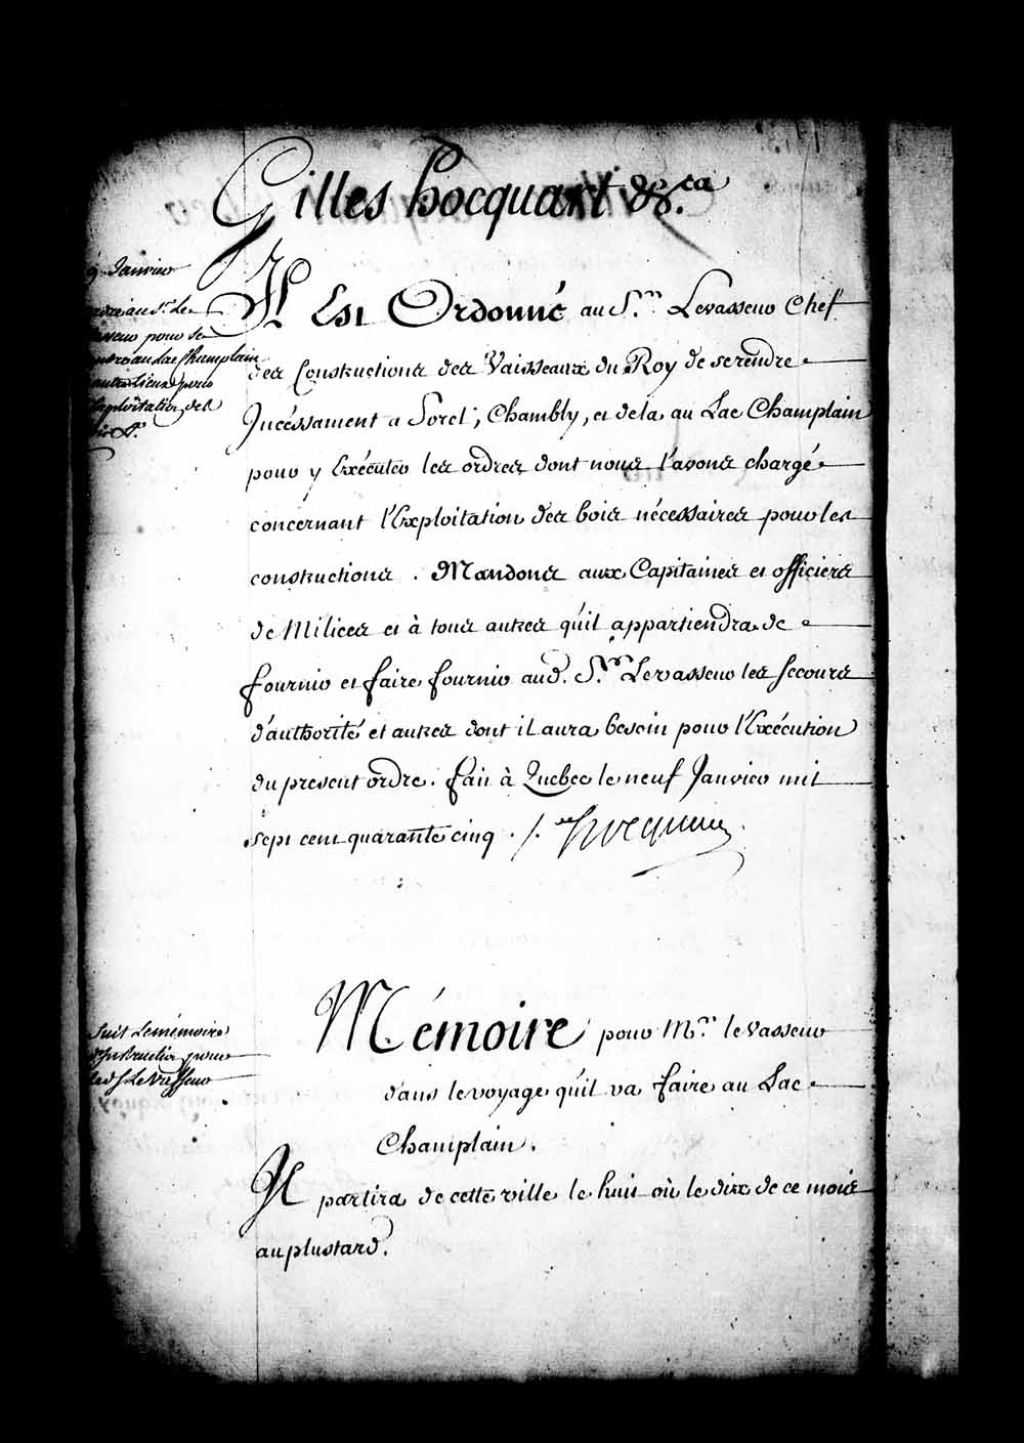 Gilles hocquart &c.ca
9 Janvier
au Sr. Le
pour se
au Lac Champlain
pour
des
Il Est Ordonné au Sr. Levasseur Chef
des Constructions des Vaisseaux du Roy de se rendre
Incéssament a Sorel, Chambly, et de la au Lac Champlain
pour y Exécuter les ordres dont nous l'avons chargé
concernant l'Exploitation des bois nécessaires pour les
constructions. Mandons aux Capitaines et officiers
de Milices et à tous autres qu'il appartiendra de
fournir et faire fournir aud. Sr. Levasseur les secours
d'authorité et autres dont il aura besoin pour l'Exécution
du present ordre. fait à Quebec le neuf Janvier mil
sept cent quarante cinq ./. Hocquart
Suit le mémoire
d'Instruction pour
led S. Le Vasseur
Mémoire pour Mr. le Vasseur
dans le voyage qu'il va faire au Lac
Champlain.
Il partira de cette ville le huit où le dix de ce mois
au plustard.